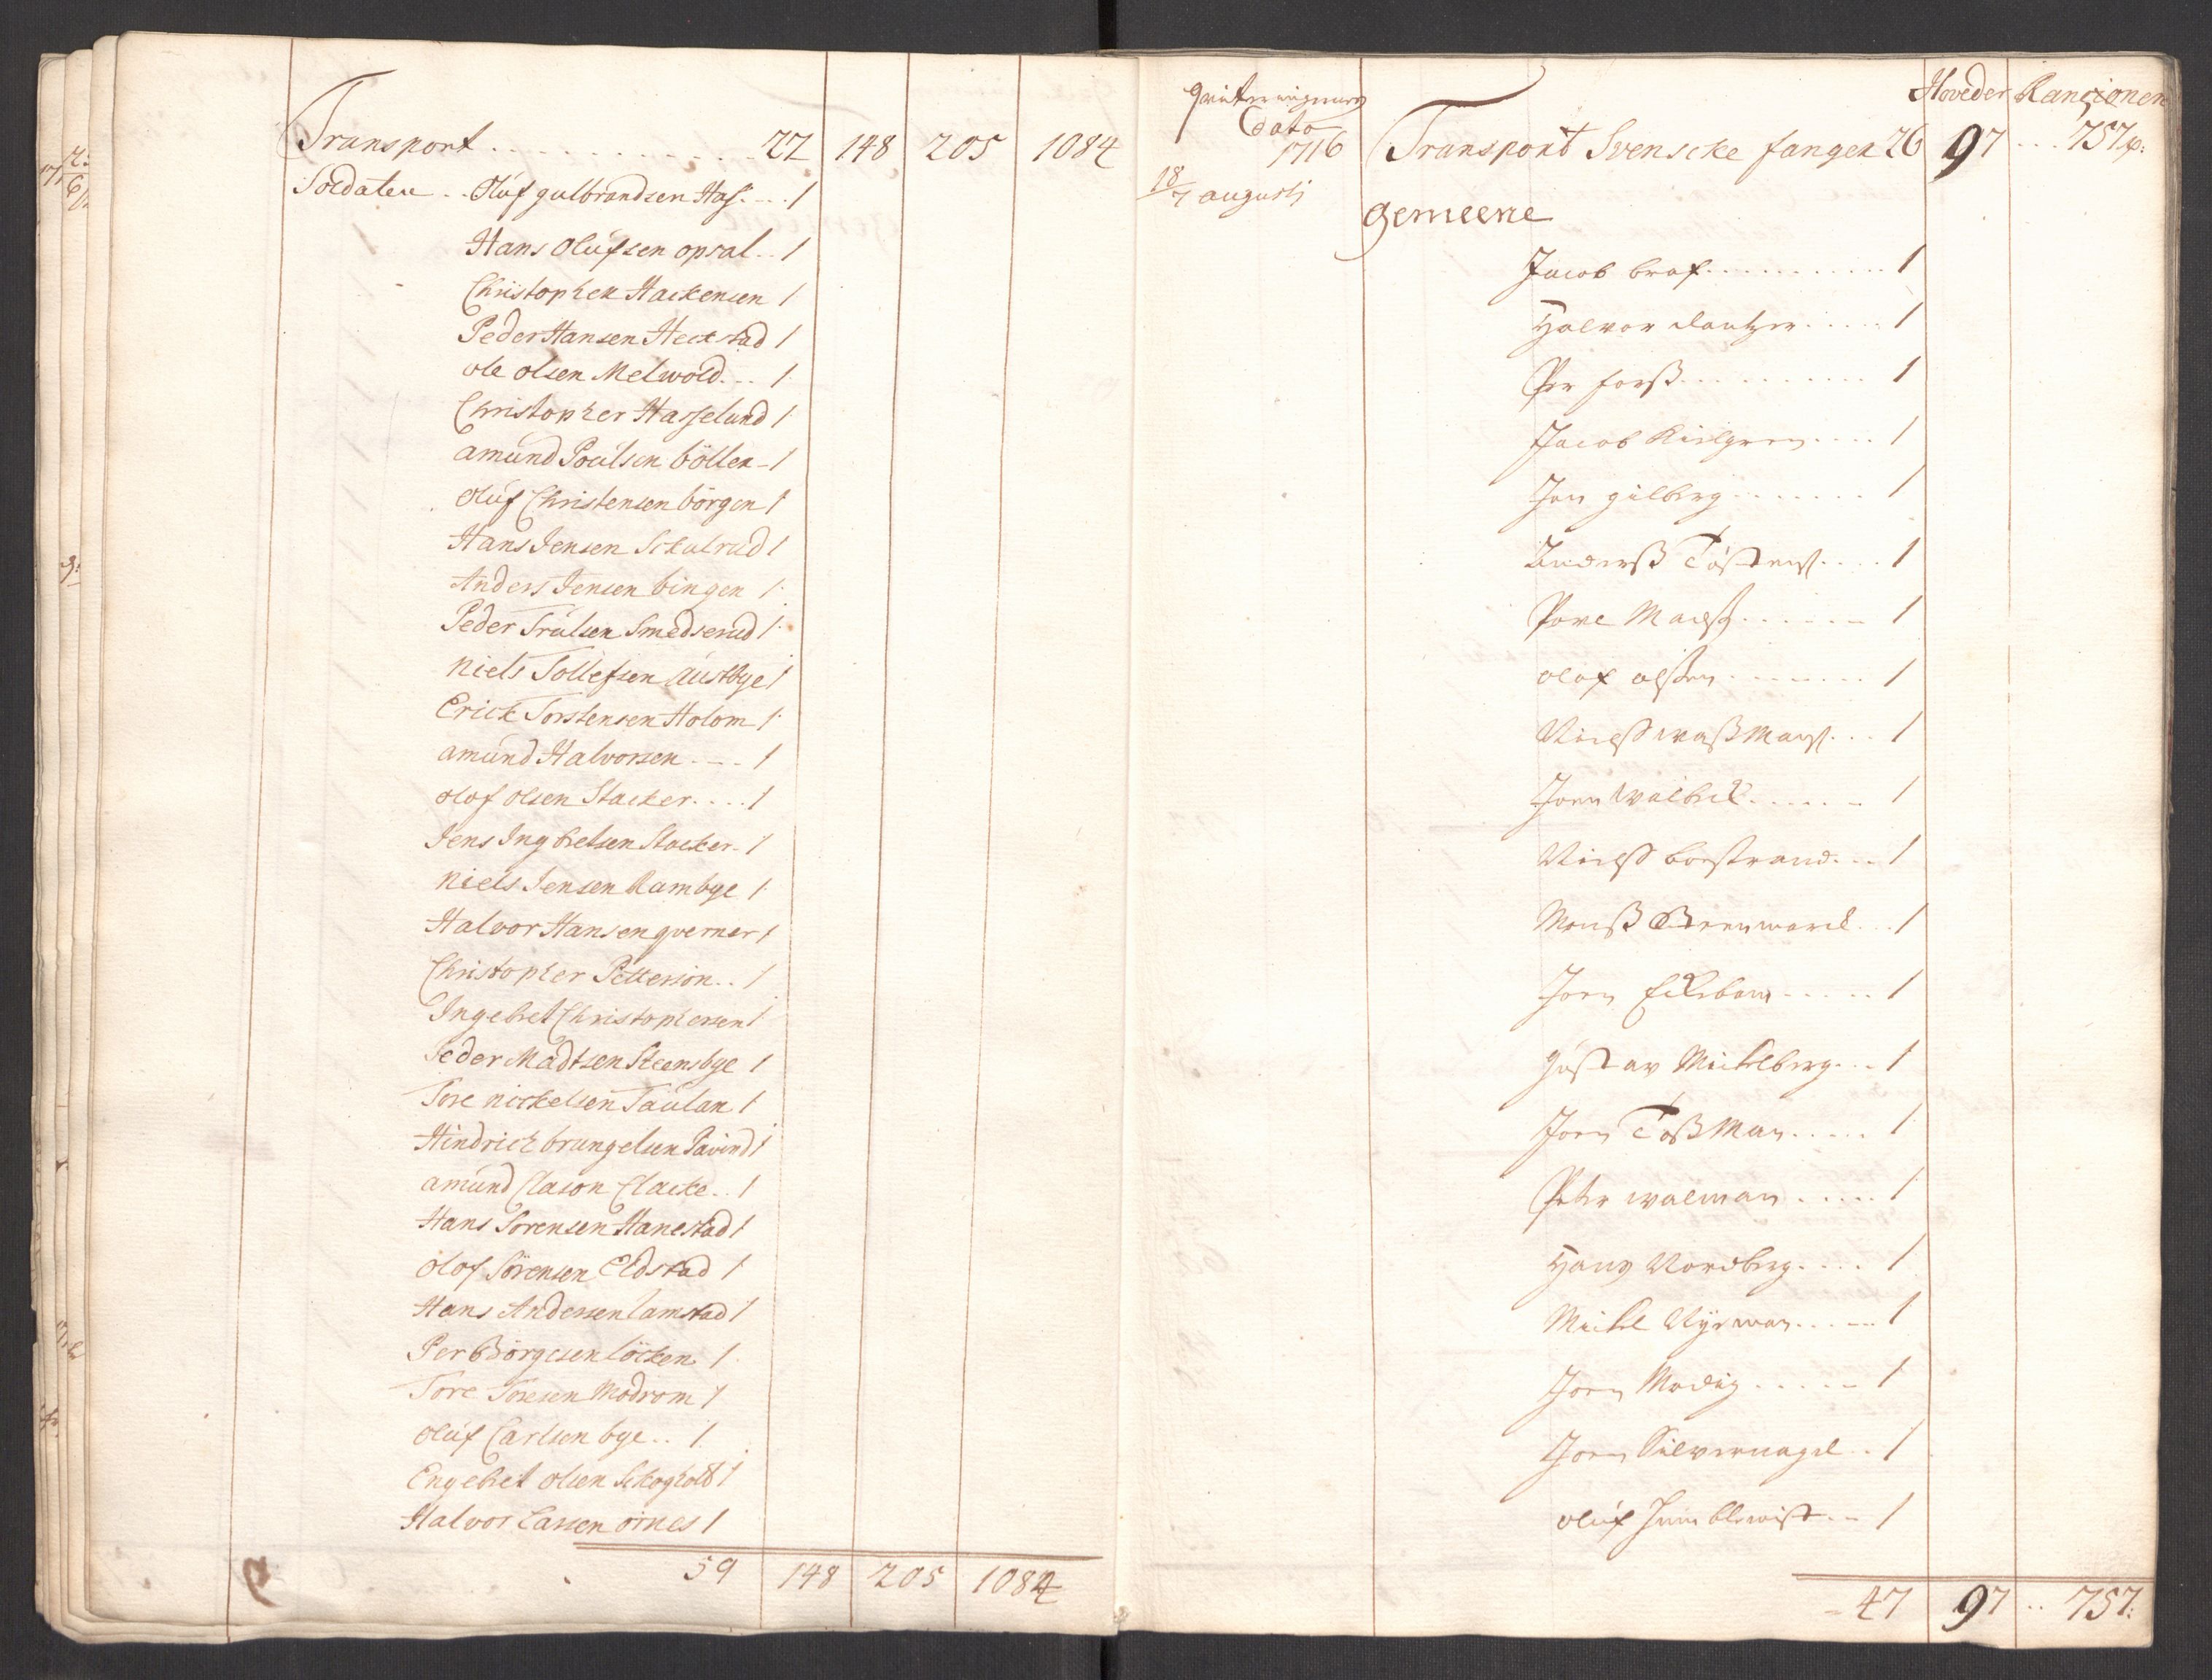 Transport . . . . . . . . . . . . 22 | 148 | 205 | 1084
Soldater . . Oluf gulbrandsen Has. . . . 1
Hans Olufsen opsal . . 1
Christopher Hackensen 1
Peder Hansen Heckstad 1
ole olsen Melwold . . . 1
Christopher Hasselund 1
amund Poulsen böller - 1
Oluf Christensen börgen 1
Hans Jensen Sckulrud 1
Anders Jensen bingen 1
Peder Trulsen Smedserud 1
Niels Tollefsen Austbye 1
Erick Torstensen Holom 1
amund Halvorsen . . . 1
olof olsen Stacker . . . . 1
Jens Ingbretsen Stacker - 1
Niels Jensen Rambye 1
Halvor Hansen qverner 1
Christopher Petterson . . 1
Ingebret Christophersen 1
Peder Madtsen Steensbye 1
Tore nickelsen Taulan 1
Hindrich brungelsen Pavind 1
amund Clason Clacke . . 1
Hans Sorensen Hanestad 1
olof Sörensen Eldstad 1
Hans Andersen lamstad 1
Per Börgesen löcken 1
Tore Toresen Modrom 1
Oluf Carlsen bye . . 1
Engebret olsen Sckogholt 1
Halvor Larsen ornes 1
59 | 148 | 205 | 1084
Hoveder Rangionen
Dato
1716 Transport Svenscke fanger 26 97 . . . 757
18/7 augusti
gemeene
Jacob braf . . . . . . . . . . . 1
Halvor dantzer . . . . . 1
Per forß . . . . . . . . . . 1
Jacob Kilgren . . . . 1
Jon gilberg . . . . . . . 1
Anderß Tostens . . . . 1
Pove Maess . . . . . . 1
olof olsson . . . . . . . 1
Nielß waßman . . . 1
Joen Walbeck . . . . . 1
Nielß borstrand . . . 1
Monß Brunward . . . 1
Joen Eckebom . . . . . 1
Gustav Mickelberg . . . 1
Joen Toßman . . . . . 1
Peter walman . . . . . 1
Hans Nordberg . . . . 1
Mickel Nyeman . . . . . 1
Joen Modig . . . . . 1
Joen Silvernagel . . 1
oluf Humblewist . . 1
47 97 . . 757